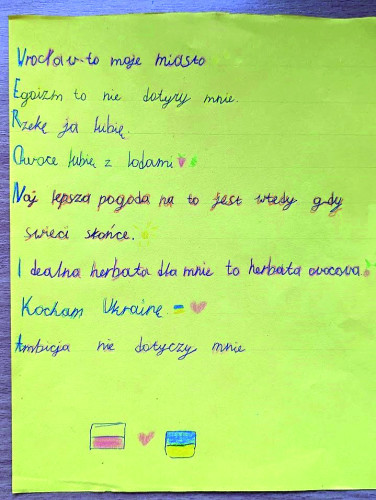 Wrocław-to moje miasto
Egoizm to nie dotyzy mnie.
Rzekę ja lubię.
Owoce lubię z lodami
Naj lepsza pogoda na to jest wtedy gdy
świeci słońce.
Idealna herbata dla mnie to herbata owocowa.
Kocham Ukrainę.
Ambicja nie dotyczy mnie